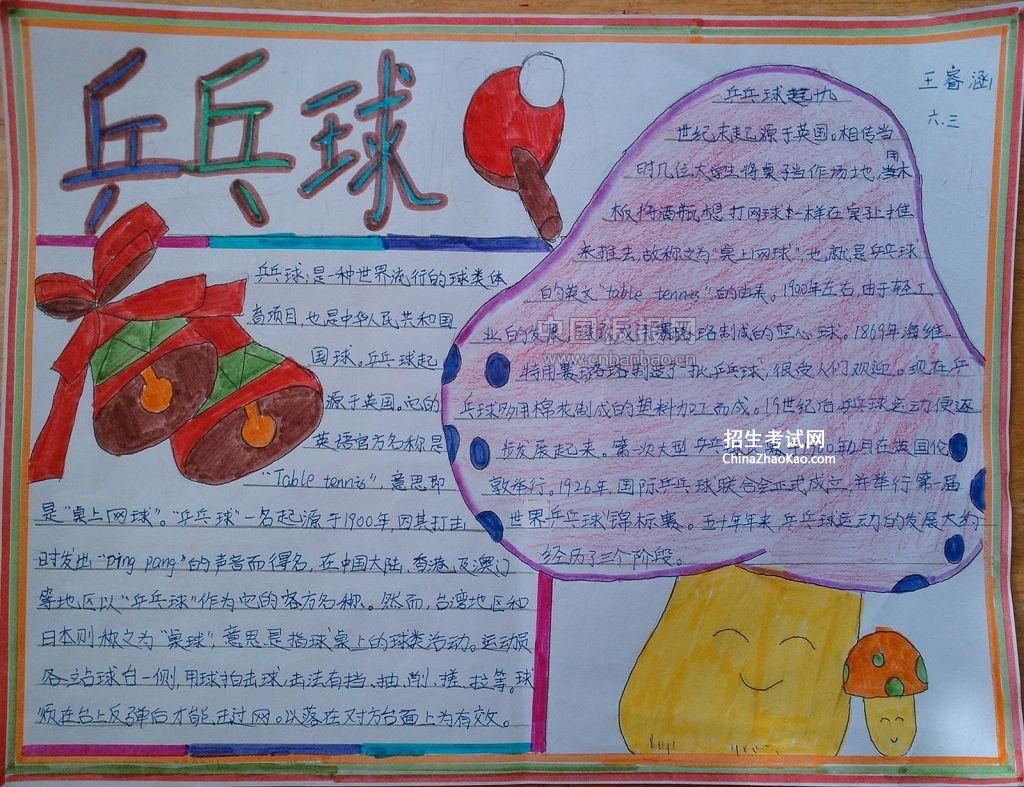 乒乓球
王睿涵
六.三
乒乓球,是一种世界流行的球类体
育项目,也是中华人民共和国
国球。乒乓球起
源于英国。它的
英语官方名称是
"Table tennis",意思即
是"桌上网球"。"乒乓球"一名起源于1900年,因其打击
时发出"ping pang"的声音而得名,在中国大陆、香港、及澳门
等地区以"乒乓球"作为它的官方名称。然而,台湾地区和
日本则称之为"桌球",意思是指球桌上的球类活动。运动员
各站球台一侧,用球拍击球,击法有挡、抽、削、搓、拉等。球
须在台上反弹后才能击过网。以落在对方台面上为有效。
乒乓球起九
世纪末起源于英国。相传当
时几位大学生将桌子当作场地,用木
板将酒瓶想打网球一样在桌上推
来推去,故称之为"桌上网球",也就是乒乓球
的英文"table tennis"的由来。1900年左右,由于轻工
业的发展 球 成 赛璐珞制成的空心球。1869年海维
特用赛璐珞制造了一批乒乓球,很受人们欢迎。现在乒
乓球多用棉花制成的塑料加工而成。19世纪后乒乓球运动便逐
步发展起来。第一次大型乒乓球 1900年1月在英国伦
敦举行。1926年,国际乒乓球联合会正式成立,并举行第一届
世界乒乓球锦标赛。五十年年来,乒乓球运动的发展大约
经历了三个阶段。
中国板报网
www.cnbanbao.cn
招生考试网
ChinaZhaoKao.com